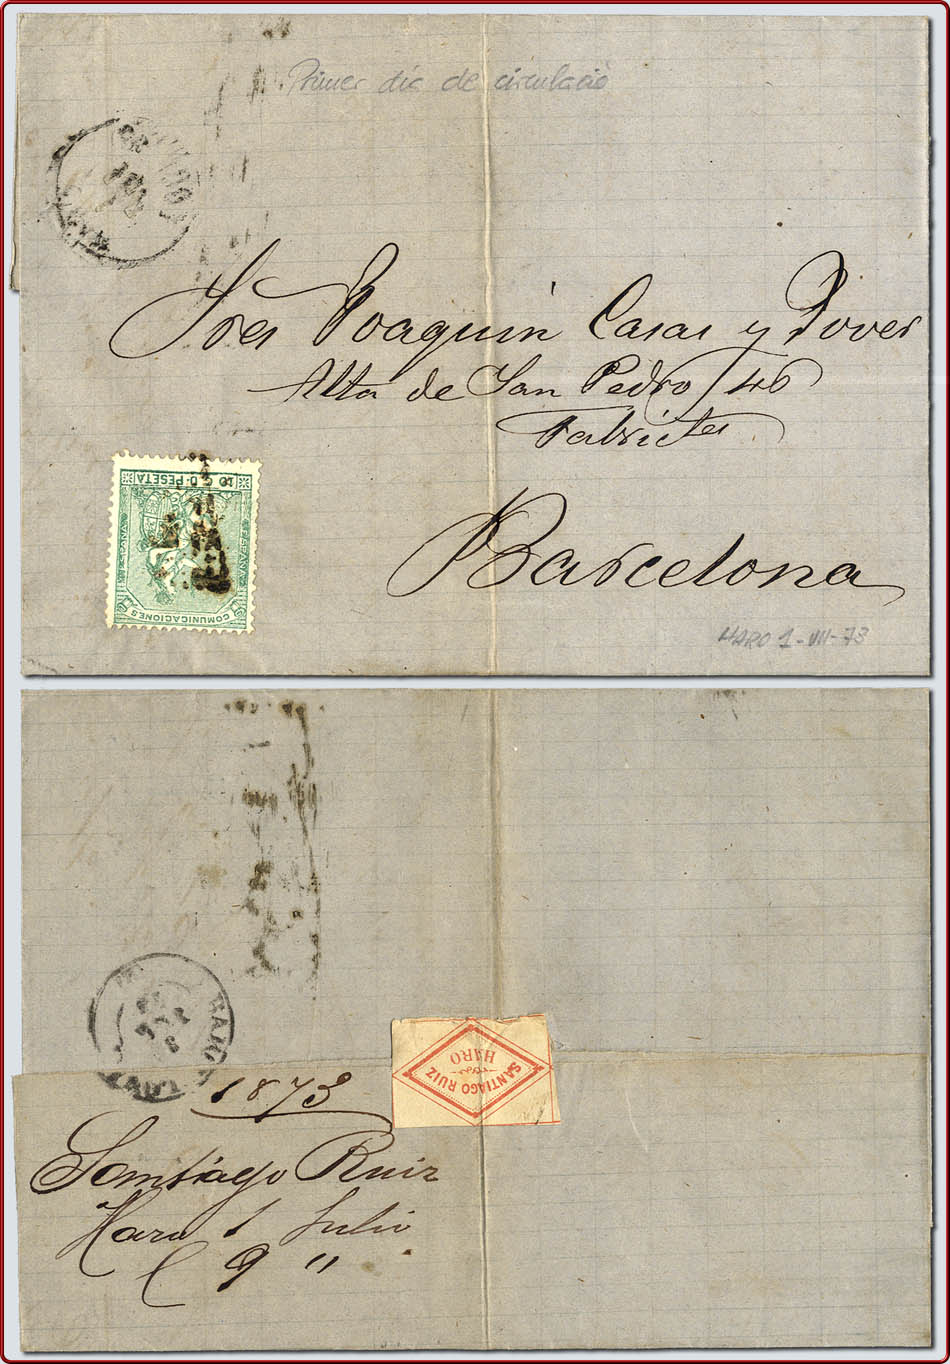 Primer dia de circulació
Sres Joaquin Casas y Jover
Alta de San Pedro 46
Fabrictes
Barcelona
10 C. D PESETA
ESPAÑA
ESPAÑA
COMUNICACIONES
HARO 1-VII-73
BARCELONA
SANTIAGO RUIZ
HARO
1873
Santiago Ruiz
Haro 1 Julio
C 9 "